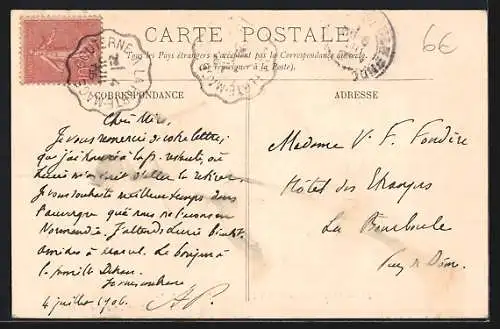 CARTE POSTALE
Tous les Pays étrangers n'acceptent pas la Correspondance au recto
(Se renseigner à la Poste).
66
CORRESPONDANCE
ADRESSE
Je vous remercie de votre lettre,
que j'ai trouvée à la p. restante, où
m'a dit d'aller la retirer.
Je vous souhaite meilleur temps dans
l'auvergne que nous ne l'avons en
Normandie. J'attends Lucie bientôt.
amitiés à Marcel. Le bonjour à
la famille
4 juillet 1906. A P.
Madame V. F.
Hôtel des Etrangers
La Bourboule
Puy de Dôme.